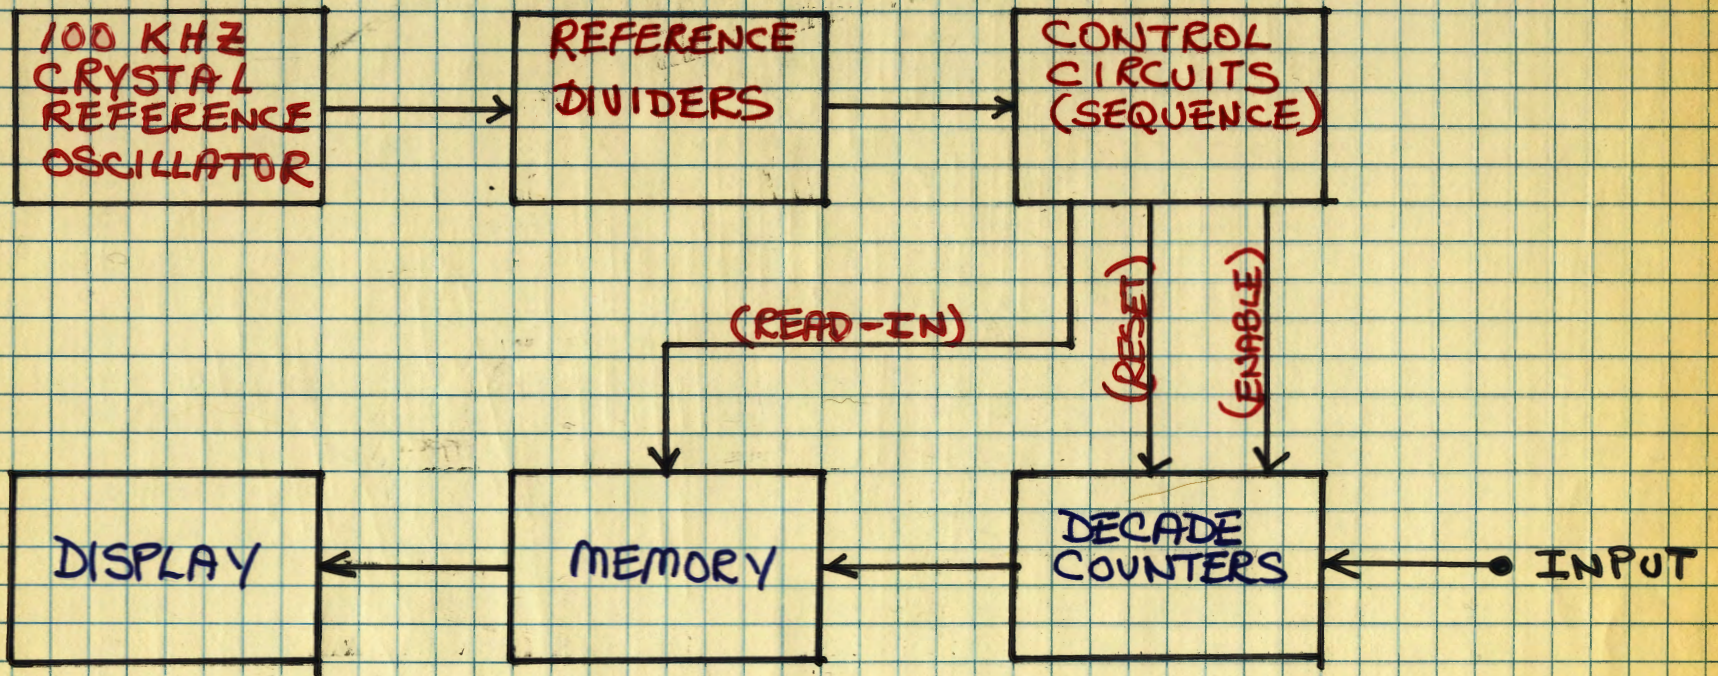 100 KHZ
CRYSTAL
REFERENCE
OSCILLATOR
REFERENCE
DIVIDERS
CONTROL
CIRCUITS
(SEQUENCE)
(READ-IN)
(RESET)
(ENABLE)
DISPLAY
MEMORY
DECADE
COUNTERS
INPUT